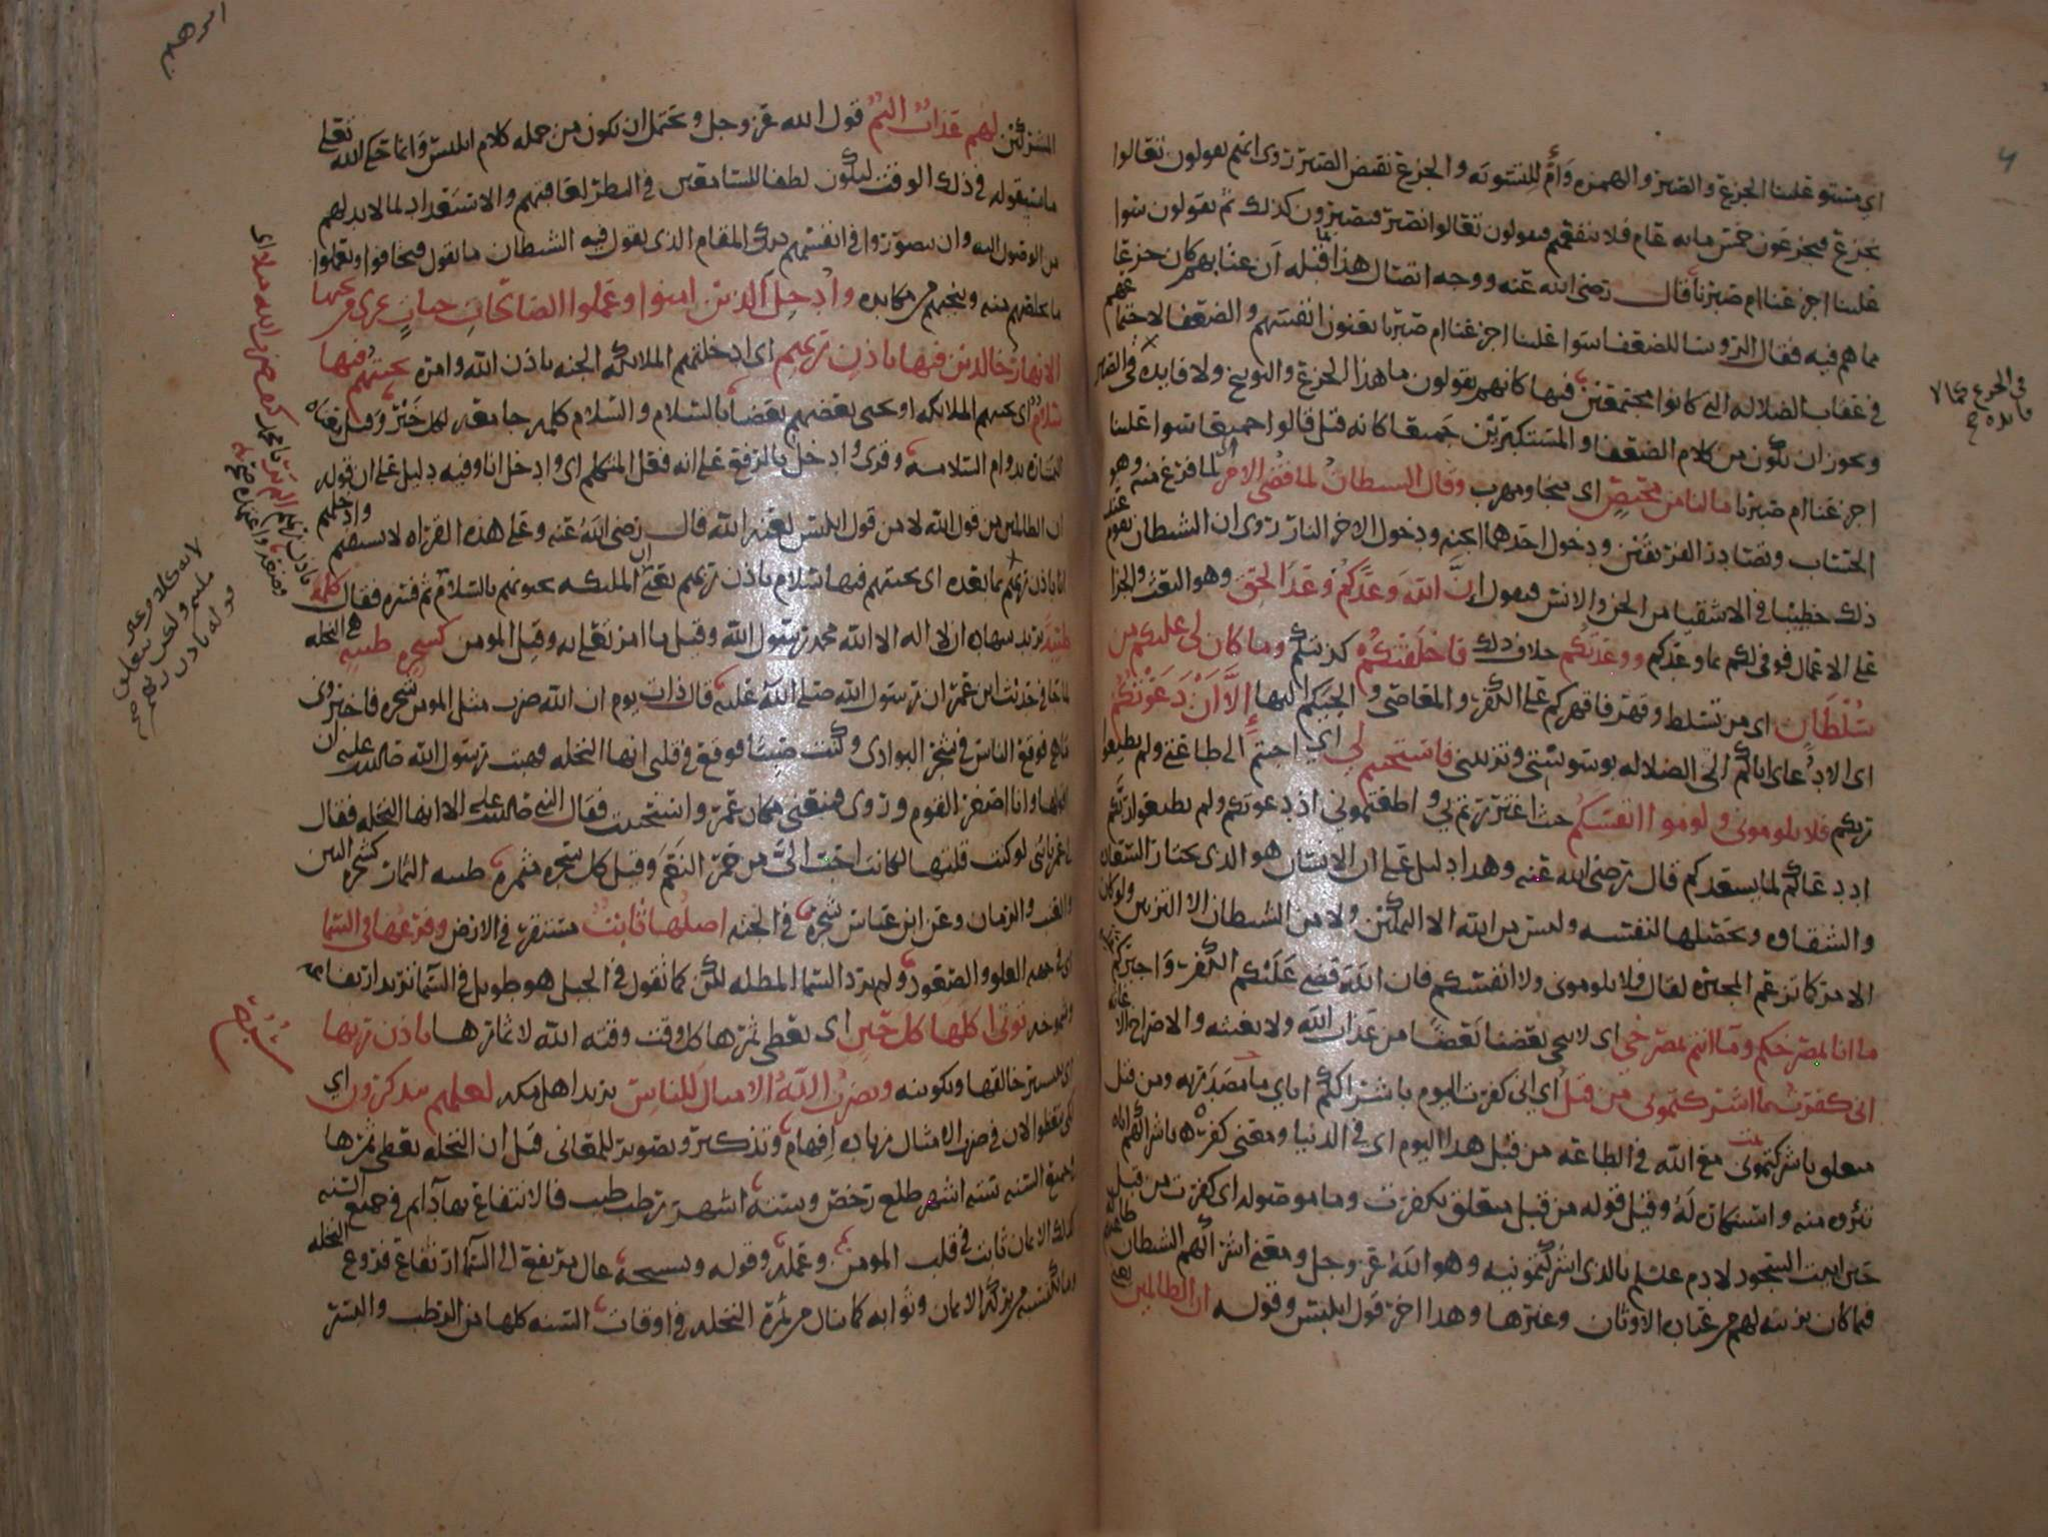 اي مستو علينا الجزع والصبر والهمزة وأم للتسوية والجزع نقيض الصبر روى انهم يقولون تعالوا
نجزع فيجزعون خمس مائة عام فلا ينفعهم فيقولون تعالوا نصبر فيصبرون كذلك ثم يقولون سوا
علينا اجزعنا ام صبرنا قال رضى الله عنه ووجه اتصال هذا بما قبله أن عتابهم كان جزعا
مما هم فيه فقال الرؤسا للضعفا سوا علينا اجزعنا ام صبرنا يعنون انفسهم والضعفا لاجتماعهم
في عقاب الضلاله التي كانوا مجتمعين فيها كانهم يقولون ما هذا الجزع والتوبيخ ولا فايده في الصبر
ويجوز ان يكون من كلام الضعفا والمستكبرين جميعا كانه قيل قالوا جميعا سوا علينا
اجزعنا ام صبرنا مالنا من محيص اي منجا ومهرب وقال الشيطان لما قضي الامر اي لما فرغ منه وهو
الحساب وتصادر الفريقين ودخول احدهما الجنه ودخول الاخر النار روى ان الشيطان يقوم عند
ذلك خطيبا في الاشقيا من الجن والانس فيقول إن الله وعدكم وعد الحق وهو البعث والجزا
على الاعمال فوفى لكم بما وعدكم ووعدتكم خلاف ذلك فاخلفتكم كذبتكم وما كان لي عليكم من
سلطان اي من تسلط وقهر فاقهركم على الكفر والمعاصى والجيكم اليها إلا أن دعوتكم
اى الا دعاى اياكم الى الضلاله بوسوستي وتزييني فاستجبتم لي اي اجبتم الى طاعتي ولم تطيعوا
ربكم فلا تلومونى ولوموا انفسكم حيث اغتررتم بي واطعتموني اذ دعوتكم ولم تطيعوا ربكم
اذ دعاكم لما يسعدكم قال رضى الله عنه وهذا دليل على ان الانسان هو الذى يختار السعادة
والشقاوه ويحصلها لنفسه وليس من الله الا التمكين ولا من الشيطان الا التزيين ولو كان
الامر كما تزعم المجبره لقال فلا تلومونى ولا انفسكم فان الله قضى عليكم الكفر واجبركم عليه
ما انا بمصرخكم وما انتم بمصرخي اى لا ينجى بعضنا بعضا من عذاب الله ولا يغيثه والاصراخ الاغاثه
انى كفرت بما اشركتمونى من قبل اي انى كفرت اليوم باشراككم اياي ما مصدريه ومن قبل
متعلق باشركتمونى مع الله في الطاعه من قبل هذا اليوم اى في الدنيا ومعنى كفره باشراكهم اياه
تبرؤه منه واستنكاره له وقيل قوله من قبل متعلق بكفرت وما موصوله اى كفرت من قبل
حين ابيت السجود لادم عليلم بالذى اشركتمونيه وهو الله عز وجل ومعنى اشراكهم الشيطان طاعتهم له
فيما كان يزينه لهم من عباده الاوثان وغيرها وهذا اخر قول ابليس وقوله ان الظالمين
في الجزع كما لا
فايده
المشركين لهم عذاب اليم قول الله عز وجل ويحتمل ان يكون من جمله كلام ابليس وانما حكى الله تعلى
ما سيقوله في ذلك الوقت ليكون لطفا للسامعين في النظر لعاقبتهم والاستعداد لما لا بد لهم
من الوصول اليه وان يتصوروا في انفسهم ذلك المقام الذى يقول فيه الشيطان ما يقول فيخافوا ويعملوا
ما يخلصهم منه وينجيهم من مكايده وادخل الذين امنوا وعملوا الصالحات جنات تجرى من تحتها
الانهار خالدين فيها باذن ربهم اى ادخلتهم الملائكه الجنه باذن الله وامره تحيتهم فيها
سلام اى يحييهم الملائكه او يحيى بعضهم بعضا بالسلام والسلام كلمه جامعه لكل خير وقيل معناه
البشاره بدوام السلامه وقرئ وادخل بالرفع على انه فعل المتكلم اى وادخل انا وفيه دليل على ان قوله
ان الظالمين من قول الله لا من قول ابليس لعنه الله قال رضى الله عنه وعلى هذه القراه لا يستقيم وادخلهم
انا باذن ربهم بما بعده اى تحيتهم فيها سلام باذن ربهم يعنى ان الملئكه يحيونهم بالسلام ثم فسره فقال كلمة
طيبة يريد شهاده ان لا اله الا الله محمد رسول الله وقيل ما امر تعلى به وقيل المومن كشجره طيبه هي النخله
لما جا في حديث ابن عمر ان رسول الله صلى الله عليه قال ذات يوم ان الله ضرب مثل المومن شجره فاخبرونى
ماهى فوقع الناس في شجر البوادى وكنت صبيا فوقع في قلبى انها النخله فهبت رسول الله صلى الله عليه ان
اقولها وانا اصغر القوم وروى فمنعنى مكان عمر واستحييت فقال النبي صلى الله عليه الا انها النخله فقال
يا عمر يابنى لو كنت قلتها لكانت احب الي من حمر النعم وقيل كل شجره مثمره طيبه الثمار كشجره التين
والعنب والرمان وعن ابن عباس شجرة في الجنه اصلها ثابت مستقر في الارض وفرعها في السما
اى في جهه العلو والصعود ولم يرد السما المظله لكن كما تقول في الجبل هو طويل في السما تريد ارتفاعه
وشموخه توتى اكلها كل حين اى يعطى ثمرها كل وقت وقته الله لاثمارها باذن ربها
اى بتيسير خالقها وتكوينه ويضرب الله الامثال للناس يريد اهل مكه لعلهم يتذكرون اي
لكى يتعظوا لان في ضرب الامثال زياده إفهام وتذكير وتصوير للمعانى قيل ان النخله يعطى ثمرها
جميع السنه ستة اشهر طلع رخص وستة اشهر رطب طيب فالانتفاع بها دايم في جميع السنه
كذلك الايمان ثابت في قلب المومن وعمله وقوله وتسبيحه عال مرتفع الى السما ارتفاع فروع النخله
وما يكتسبه من بركه الايمان وثوابه كما ينال من ثمرة النخله في اوقات السنه كلها من الرطب والبسر